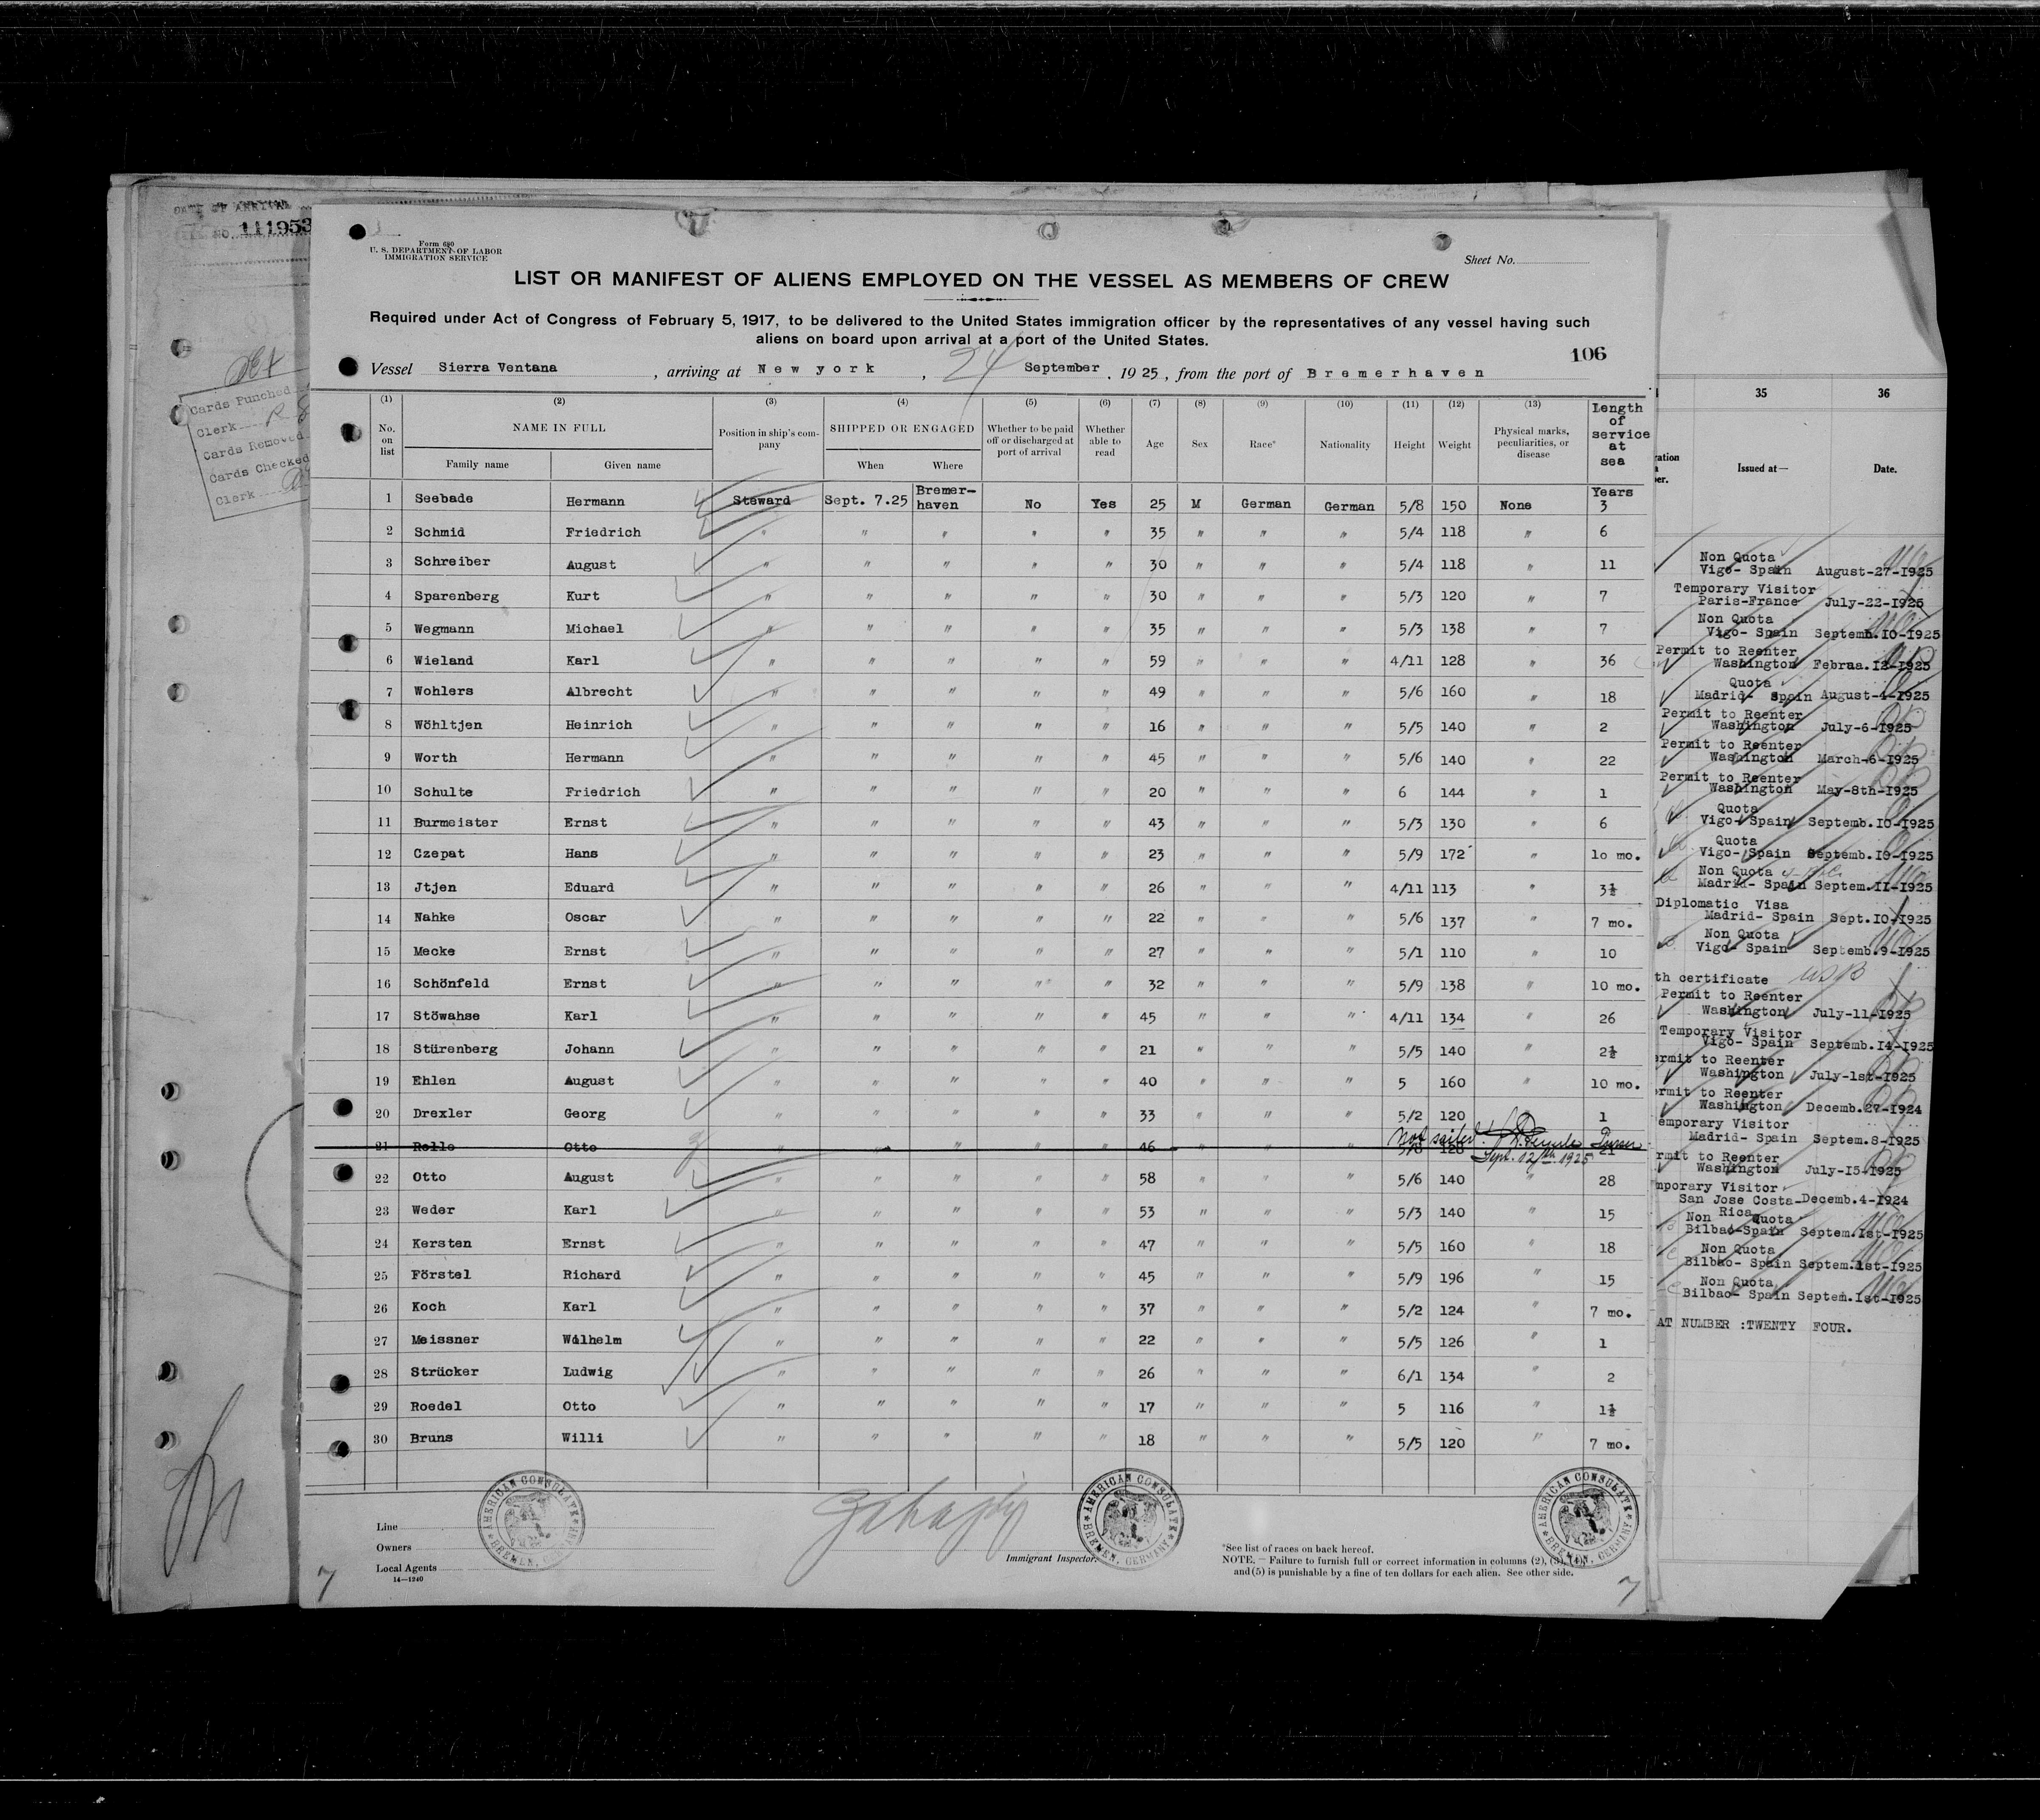 DATE OF ARRIVAL
NO. 111953
Cards Punched
Clerk
Cards Removed
Cards Checked
Clerk
Form 680
U. S. DEPARTMENT OF LABOR
IMMIGRATION SERVICE
Sheet No.
LIST OR MANIFEST OF ALIENS EMPLOYED ON THE VESSEL AS MEMBERS OF CREW
Required under Act of Congress of February 5, 1917, to be delivered to the United States immigration officer by the representatives of any vessel having such
aliens on board upon arrival at a port of the United States.
106
Vessel Sierra Ventana, arriving at New york, 24 September, 1925, from the port of Bremerhaven
(1) (2) (3) (4) (5) (6) (7) (8) (9) (10) (11) (12) (13)
No. on list NAME IN FULL Family name Given name Position in ship's company SHIPPED OR ENGAGED When Where Whether to be paid off or discharged at port of arrival Whether able to read Age Sex Race* Nationality Height Weight Physical marks, peculiarities, or disease Length of service at sea
1 Seebade Hermann Steward Sept. 7.25 Bremer-haven No Yes 25 M German German 5/8 150 None Years 3
2 Schmid Friedrich " " " " " 35 " " " 5/4 118 " 6
3 Schreiber August " " " " " 30 " " " 5/4 118 " 11
4 Sparenberg Kurt " " " " " 30 " " " 5/3 120 " 7
5 Wegmann Michael " " " " " 35 " " " 5/3 138 " 7
6 Wieland Karl " " " " " 59 " " " 4/11 128 " 36
7 Wohlers Albrecht " " " " " 49 " " " 5/6 160 " 18
8 Wöhltjen Heinrich " " " " " 16 " " " 5/5 140 " 2
9 Worth Hermann " " " " " 45 " " " 5/6 140 " 22
10 Schulte Friedrich " " " " " 20 " " " 6 144 " 1
11 Burmeister Ernst " " " " " 43 " " " 5/3 130 " 6
12 Czepat Hans " " " " " 23 " " " 5/9 172 " 1o mo.
13 Jtjen Eduard " " " " " 26 " " " 4/11 113 " 3½
14 Nahke Oscar " " " " " 22 " " " 5/6 137 " 7 mo.
15 Mecke Ernst " " " " " 27 " " " 5/1 110 " 10
16 Schönfeld Ernst " " " " " 32 " " " 5/9 138 " 10 mo.
17 Stöwahse Karl " " " " " 45 " " " 4/11 134 " 26
18 Stürenberg Johann " " " " " 21 " " " 5/5 140 " 2½
19 Ehlen August " " " " " 40 " " " 5 160 " 10 mo.
20 Drexler Georg " " " " " 33 " " " 5/2 120 " 1
21 Rolle Otto " " " " " 46 " " " 5/8 128 21
Not sailed. Purser
Sept. 12th 1925
22 Otto August " " " " " 58 " " " 5/6 140 " 28
23 Weder Karl " " " " " 53 " " " 5/3 140 " 15
24 Kersten Ernst " " " " " 47 " " " 5/5 160 " 18
25 Förstel Richard " " " " " 45 " " " 5/9 196 " 15
26 Koch Karl " " " " " 37 " " " 5/2 124 " 7 mo.
27 Meissner Wilhelm " " " " " 22 " " " 5/5 126 " 1
28 Strücker Ludwig " " " " " 26 " " " 6/1 134 " 2
29 Roedel Otto " " " " " 17 " " " 5 116 " 1½
30 Bruns Willi " " " " " 18 " " " 5/5 120 " 7 mo.
Line
Owners
Local Agents
14—1240
Immigrant Inspector.
*See list of races on back hereof.
NOTE. — Failure to furnish full or correct information in columns (2), (3), (4),
and (5) is punishable by a fine of ten dollars for each alien. See other side.
AMERICAN CONSULATE BREMEN, GERMANY
AMERICAN CONSULATE BREMEN, GERMANY
AMERICAN CONSULATE BREMEN, GERMANY
7
7
35 36
Issued at— Date.
Non Quota
Vigo- Spain August-27-I925
Temporary Visitor
Paris-France July-22-I925
Non Quota
Vigo- Spain Septemb.IO-I925
Permit to Reenter
Washington Februa.I2-I925
Quota
Madrid- Spain August-4-I925
Permit to Reenter
Washington July-6-I925
Permit to Reenter
Washington March-6-I925
Permit to Reenter
Washington May-8th-I925
Quota
Vigo- Spain Septemb.IO-I925
Quota
Vigo- Spain Septemb.IO-I925
Non Quota
Madrid- Spain Septem.II-I925
Diplomatic Visa
Madrid- Spain Sept.IO-I925
Non Quota
Vigo- Spain Septemb.9-I925
th certificate USB
Permit to Reenter
Washington July-11-I925
Temporary Visitor
Vigo- Spain Septemb.I4-I925
ermit to Reenter
Washington July-1st-I925
rmit to Reenter
Washington Decemb.27-I924
emporary Visitor
Madrid- Spain Septem.8-I925
rmit to Reenter
Washington July-I5-I925
mporary Visitor
San Jose Costa-Decemb.4-I924
Rica
Non Quota
Bilbao-Spain Septem.1st-I925
Non Quota
Bilbao- Spain Septem.1st-I925
Non Quota
Bilbao- Spain Septem.1st-I925
AT NUMBER :TWENTY FOUR.